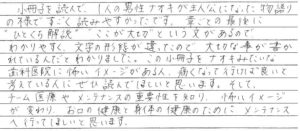 小冊子を読んで、1人の男性オオキが主人公になった物語り
の様ですごく読みやすかったです。章ごとの最後に
"ひとくち解説" "ここが大切"という文があるので
わかりやすく、文字の形態が違ったので大切な事が書か
れているんだとわかりました。この小冊子をオオキみたいな
歯科医院に怖いイメージがある人、痛くなって行けば良いと
考えている人にぜひ読んでほしいと思います。そして、
ホーム医療やメンテナンスの重要性を知り、怖いイメージ
が変わり、お口の健康と身体の健康のためにメンテナンス
へ行ってほしいと思います。